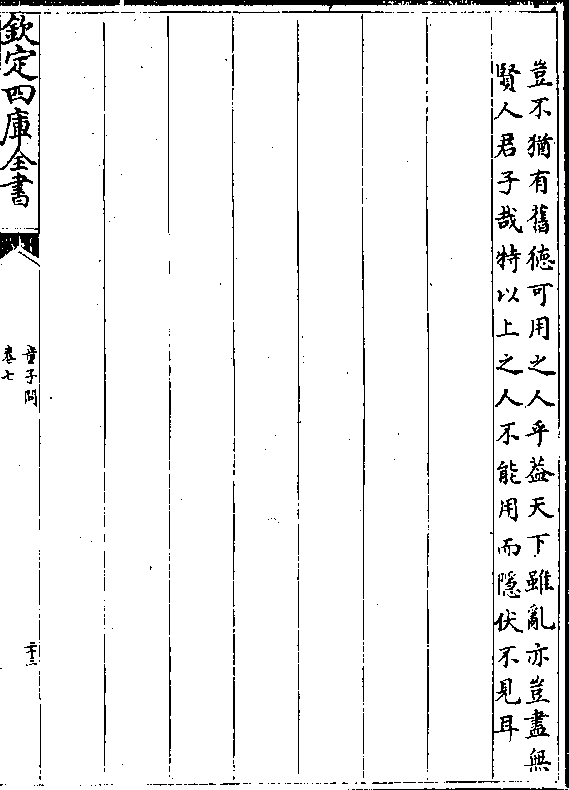 豈不猶有舊徳可用之人乎葢天下雖亂亦豈盡無
賢人君子哉特以上之人不能用而隱伏不見耳
欽定四庫全書
童子問
卷七
二十三